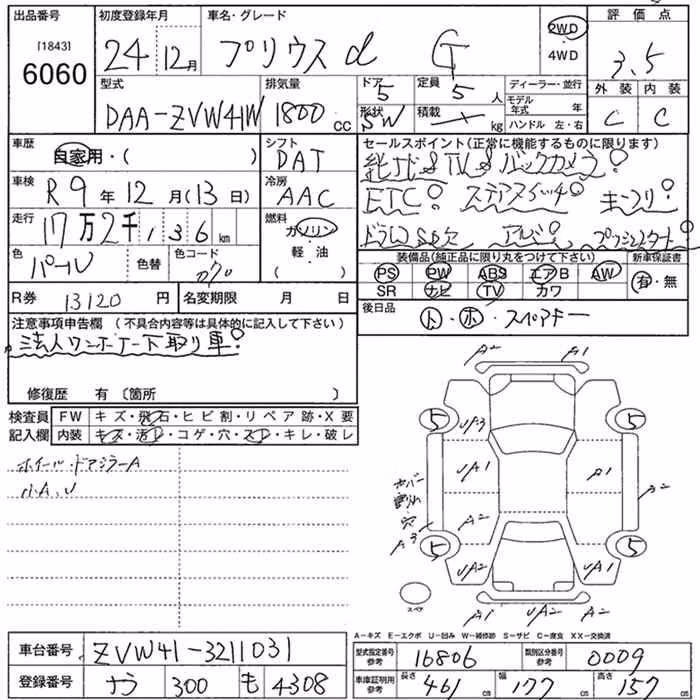 出品番号 初度登録年月 車名・グレード 評価点
[1843] 6060 24年 12月 プリウスα G 2WD ・ 4WD 3.5
外装 内装
C C
型式 排気量 ドア 定員 ディーラー・並行
DAA-ZVW41W 1800cc 5 5人 モデル年式 年
形状 SW 積載 kg ハンドル 左・右
車歴 自家用・( ) シフト DAT
セールスポイント(正常に機能するものに限ります)
純ナビ&TV&バックカメラ!
車検 R9年12月(13日) 冷房 AAC
ETC! ステアスイッチ! キーフリ!
走行 17万2千136km 燃料 ガソリン・軽油
アルミ! プッシュスタート!
色 パール 色替 色コード
装備品(純正品に限り丸をつけて下さい) 新車保証書
PS PW ABS エアB AW 有・無
SR ナビ TV カワ
R券 13120円 名変期限 月 日
後日品 ト・ホ・スペアキー
注意事項申告欄 (不具合内容等は具体的に記入して下さい)
法人ワンオーナー下取り車!
修復歴 有 〔箇所 〕
検査員記入欄 FW キズ・飛石・ヒビ割・リペア跡・X要
内装 キズ・汚レ・コゲ・穴・スレ・キレ・破レ
ホイール・ドアミラーA
小A、U
A2 A1
5 5
UA3
UA1 A1
カバー割れ穴 A2 A2
A3
5 5
UA2 UA2
スペア A1 UA2 A2
A-キズ E-エクボ U-凹み W-補修跡 S-サビ C-腐食 XX-交換済
車台番号 ZVW41-3211031
型式指定番号参考 16806 類別区分番号参考 0009
登録番号 なら 300 も 4308
車庫証明用参考 長さ 461cm 幅 177cm 高さ 157cm